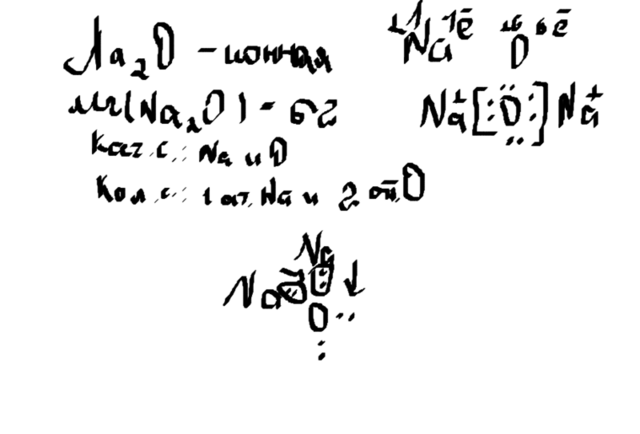 Na₂O - ионная
Mr(Na₂O) = 62
Кач. с.: Na и O
Кол. с.: 1 ат. Na и 2 ат. O
Na 1ē O 6ē
Na⁺[:Ö:]Na⁺
Na
Na
O